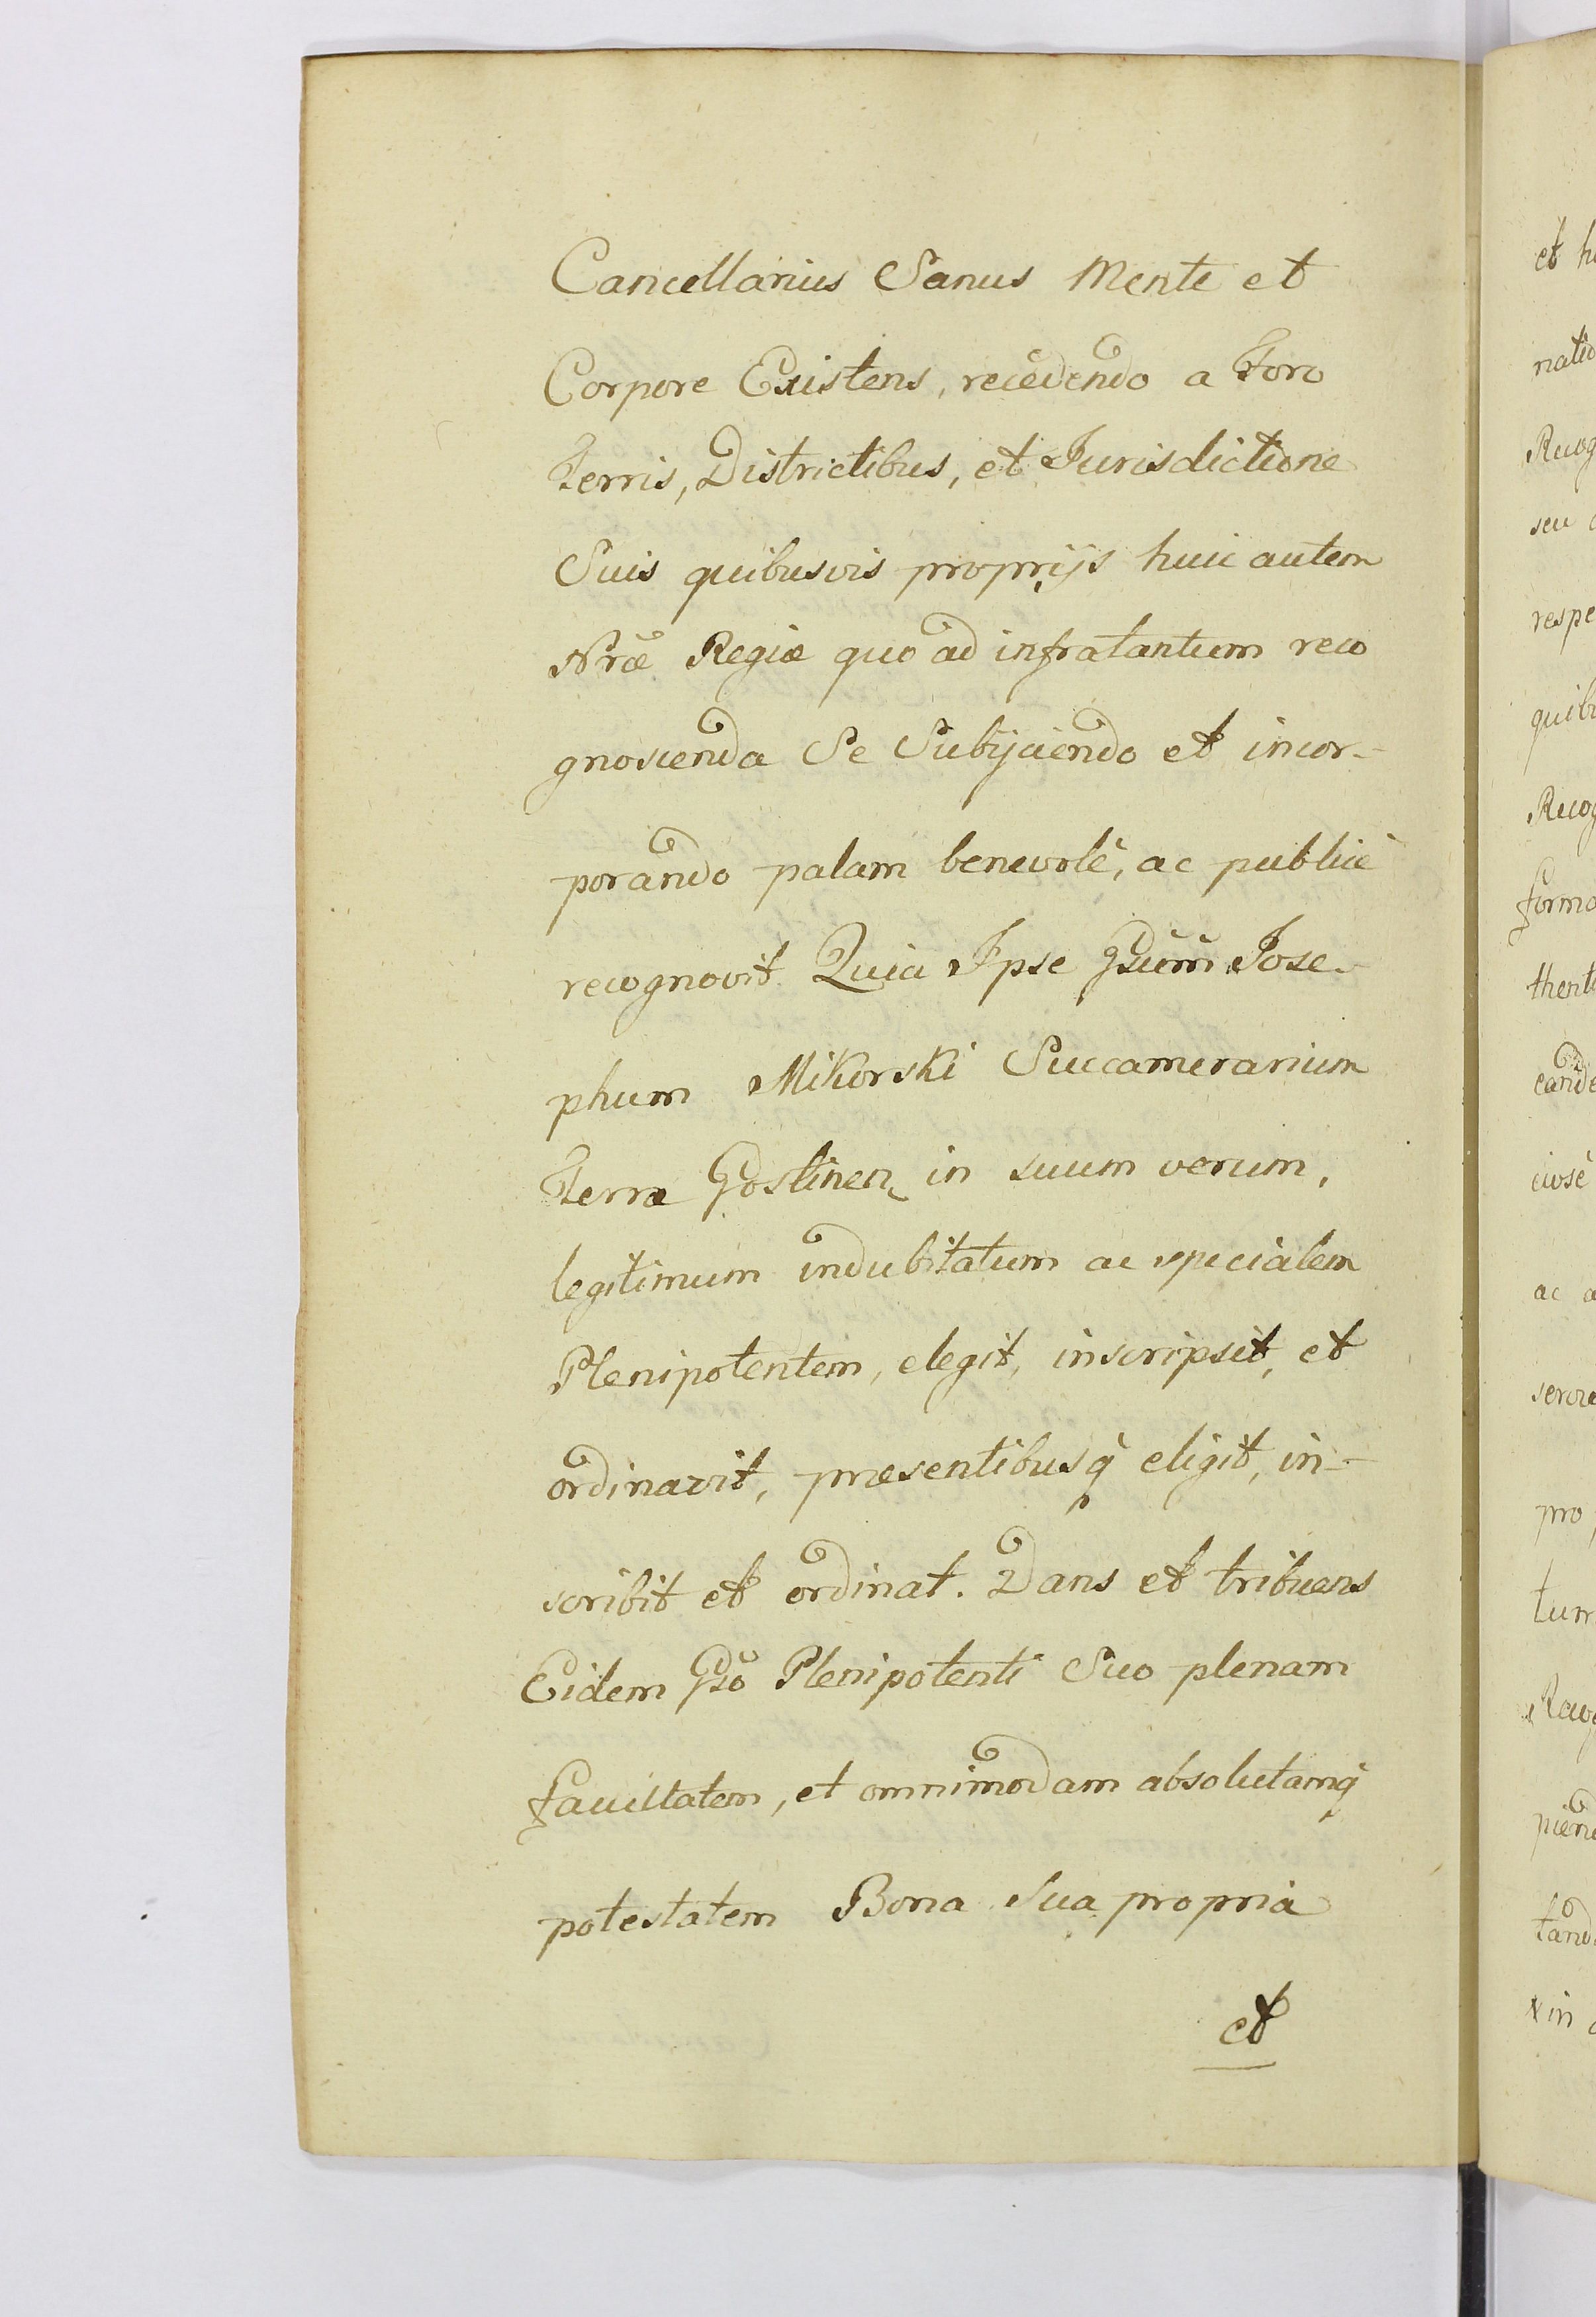 Cancellarius Sanus Mente et
Corpore Existens, recedendo a Foro
Terris, Districtibus, et Jurisdictione
Suis quibusvis proprijs huic autem
Nrae Regiae quo ad infratantum reco
gnoscenda Se Subijciendo et incor-
porando palam benevolè, ac publicè
recognovit Quia Ipse Gsum Jose-
phum Mikorski Succamerarium
Terrae Gostinen in suum verum,
legitimum indubitatum ac specialem
Plenipotentem, elegit, inscripsit, et
ordinavit, praesentibusq eligit, in-
scribit et ordinat. Dans et tribuens
Eidem Gso Plenipotenti Suo plenam
facultatem, et omnimodam absolutamq
potestatem Bona Sua propria
et
et
Recog
seu
respe
quib
Recog
form
ac
pro
tum
in